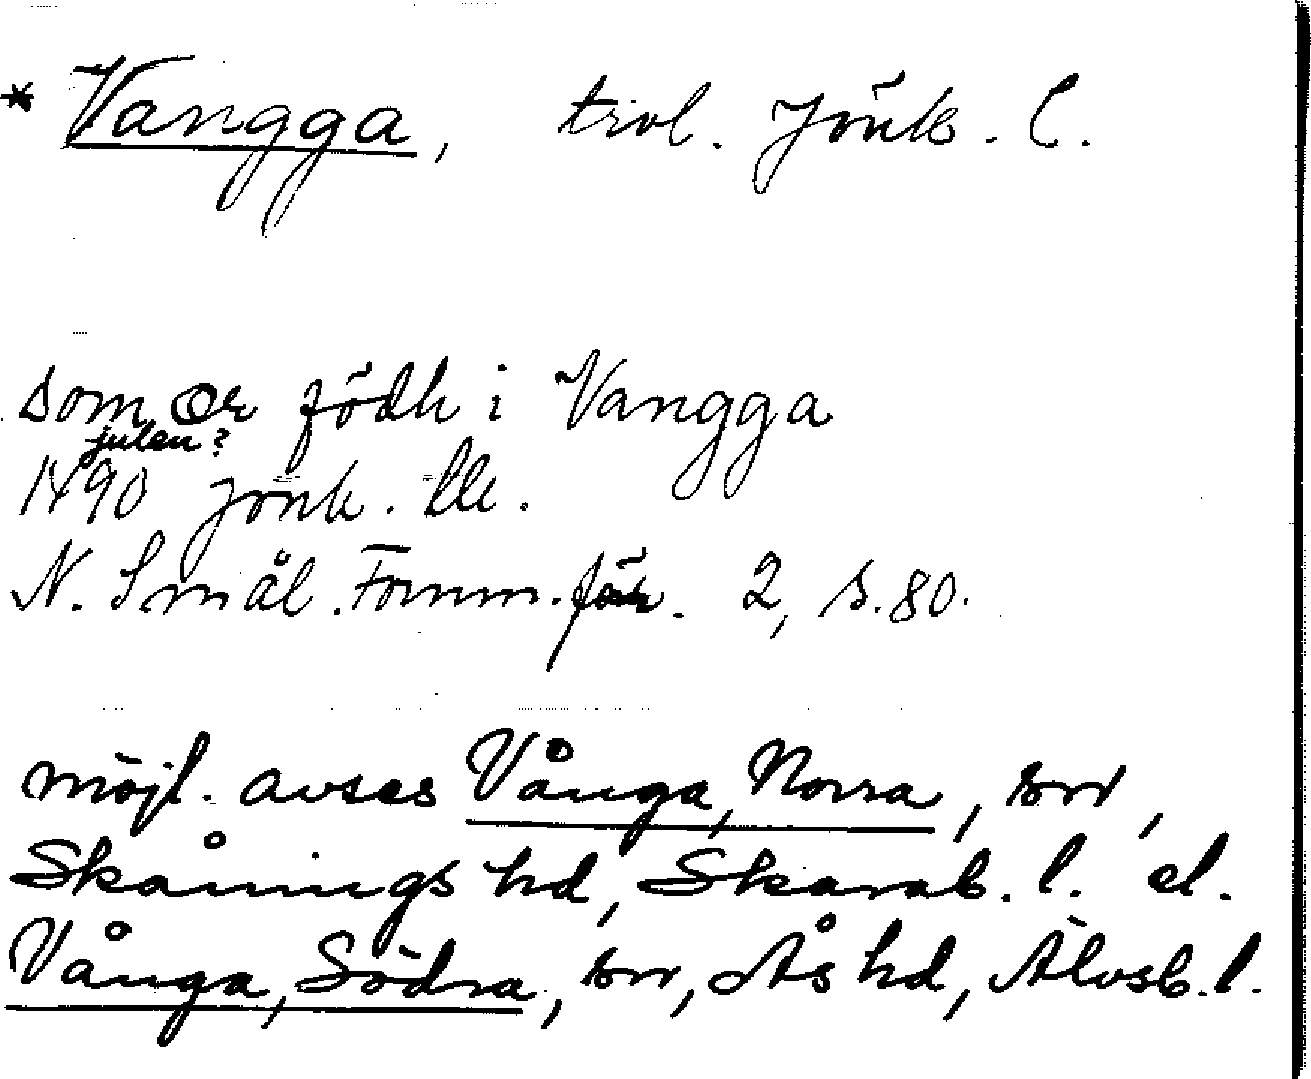 * Vangga, trol. Jönk. l.
som er födh i Vangga
julen?
1490 Jönk. tb.
N. Smål. Fornm.för. 2, s. 80.
möjl. avses Vånga, Norra, sn,
Skånings hd, Skarab. l. el.
Vånga, Södra, sn, Ås hd, Älvsb. l.